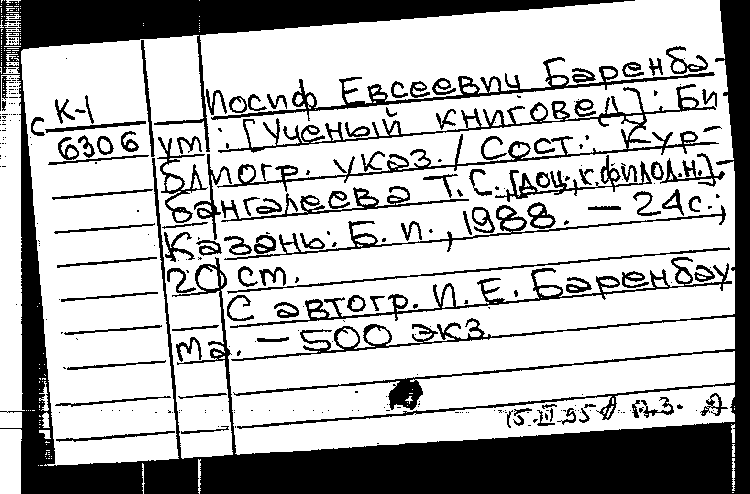 Иосиф Евсеевич Баренба-
с К-1
6306 ум: [Ученый книговед]: Би-
блиогр. указ. / Сост.: Кур-
бангалеева Т. С., [доц., к.филол.н.].-
Казань: Б. и., 1988. — 24с.;
20 ст.
С автогр. И. Е. Баренбау-
ма. — 500 экз.
15.III.95